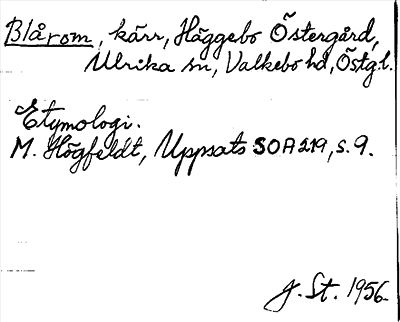 Blårom, kärr, Häggebo Östergård,
Ulrika sn, Valkebo hd, Östg.l.
Etymologi.
M. Högfeldt, Uppsats SOA 219, s. 9.
J. St. 1956